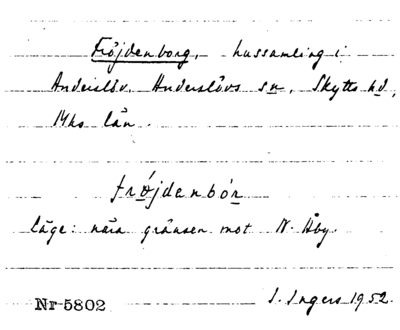 Fröjdenborg, hussamling i
Anderslöv, Anderslövs sn, Skytts hd,
Mhs län.
frǿjdenbór
läge: nära gränsen mot N. Åby.
Nr 5802
I. Ingers 1952.